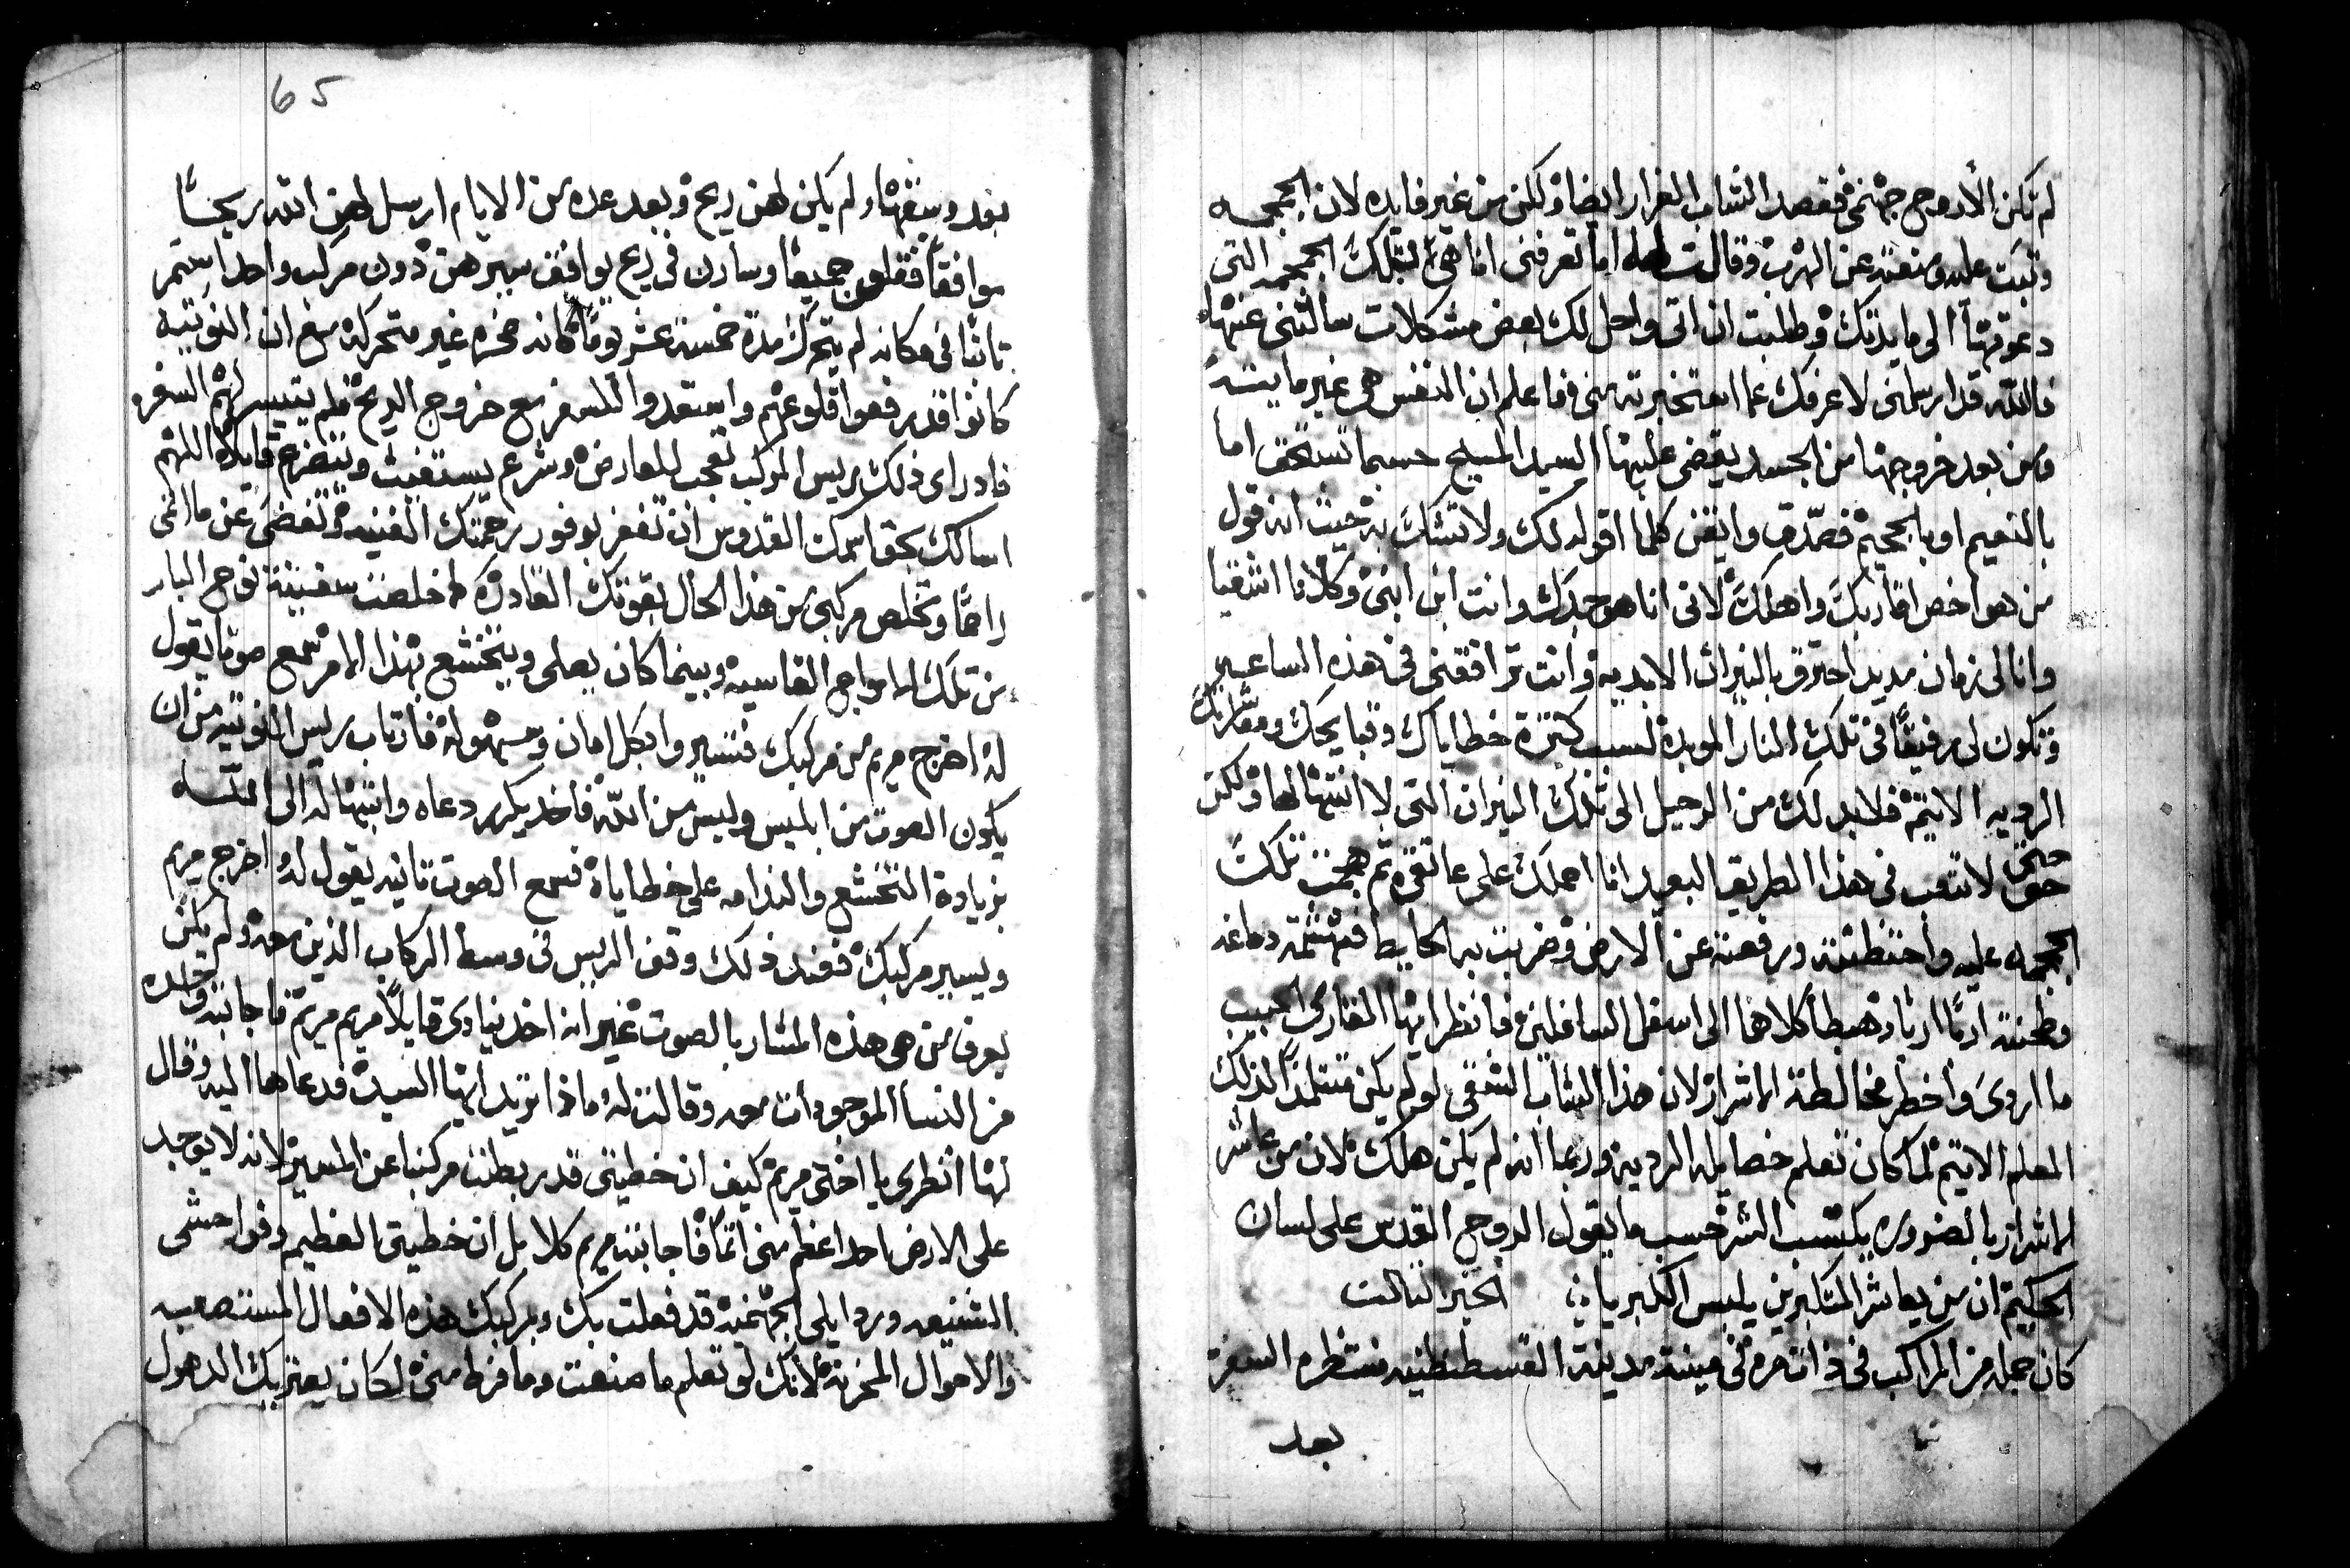 لم تكن الا روح جهنمى فقصد الشاب الفرار ايضا ولكن من غير فايده لان الجمجمه
وثبت عليه ومنعته عن الهرب وقالت له اما تعرفنى انا هى لتلك الجمجمه التى
دعوتها الى مايدتك وطلبت ان اتى واحل لك بعض مشكلات سالتنى عنها
فالله قد ارسلنى لاعرفك عما استخبرته منى فاعلم ان النفس هى غير مايته
ومن بعد خروجها من الجسد يقضى عليها السيد المسيح حسبما تستحق اما
بالنعيم او بالجحيم فصدق وايقن كلما اقوله لك ولا تشك به حيث انه قول
من هو اخص اقاربك واهلك لانى انا هو جدك وانت ابن ابنى وكلانا اشقيا
وانا لى زمان مديد احترق بالنيران الابديه وانت ترافقنى فى هذه الساعه
وتكون لى رفيقا فى تلك النار الموبده لسبب كثرة خطاياك وقبايحك ومعاشرتك
الرديه الاثيمه فلابد لك من الرحيل الى تلك النيران التى لا انتها لها ولكن
حتى لا تتعب فى هذا الطريق البعيد انا احملك على عاتقى ثم هجمت تلك
الجمجمه عليه واختطفته ورفعته عن الارض وضربت به الحايط فهشمة دماغه
وطحنته اربا اربا وهبطا كلاهما الى اسفل السافلين فانظر ايها القارى الحبيب
ما اردى واخطر مخالطة الاشرار لان هذا الشاب الشقى لو لم يكن متتلمذا لذلك
المعلم الاثيم لما كان تعلم خصايله الرديه وربما انه لم يكن هلك لان من عاشر
الاشرار بالضروره يكتسب الشر حسب ما يقول الروح القدس على لسان
الحكيم ان من يعاشر المتكبرين يلبس الكبريا الخبر الثالث
كان جمله من المراكب فى ذات مره فى مينة مدينة القسطنطنيه منتظره السفر
بعد
65
بعد وسقها ولم يكن لهن ريح وبعد عدة من الايام ارسل لهن الله ريحا
موافقا فقلعن جميعا وسارن فى ريح يوافق سيرهن دون مركب واحد استمر
ثابتا فى مكانه لم يتحرك مدة خمسة عشر يوما كانه صخره غير متحركه مع ان النوتيه
كانوا قد رفعوا قلوعهم واستعدوا للسفر مع خروج الريح فلم يتيسر لهم السفر
فاد راى ذلك ريس المركب تعجب للعارض وشرع يستغيث ويتضرع قايلا اللهم
اسالك بحق اسمك القدوس ان تغفر بوفور رحمتك الغنيه وتغضى عن ماثمى
راحما وتخلص مركبى من هذا الحال بقوتك القادره كما خلصت سفينة نوح البار
من تلك الامواج القاسيه وبينما كان يصلى ويتخشع بهذا الامر سمع صوتا يقول
له اخرج مريم من مركبك فتسيروا بكل امان وسهوله فارتاب ريس النوتيه من ان
يكون الصوت من ابليس وليس من الله فاخد يكرر دعاه وابتهاله الى الله
بزيادة التخشع والندامه على خطاياه فسمع الصوت ثانيه يقول له اخرج مريم
ويسير مركبك فعند ذلك وقف الريس فى وسط الركاب الذين معه ولم يكن
يعرف من هى هذه المشار بالصوت غير انه اخد ينادى قايلا مريم مريم فاجابته وحده
من النسا الموجودات معه وقالت له ماذا تريد ايها السيد فدعاها اليه وقال
لها انظرى يا اختى مريم كيف ان خطيتى قد ربطت مركبنا عن المسير لانه لا يوجد
على الارض احد اعظم منى اثما فاجابته مريم كلا بل ان خطيتى العظيم وفواحشى
الشنيعه ورذايلى الجهنميه قد فعلت بك وبمركبك هذه الافعال المستصعبه
والاحوال المحزنه لانك لو تعلم ما صنعت وما فرط منى لكان يعتريك الذهول